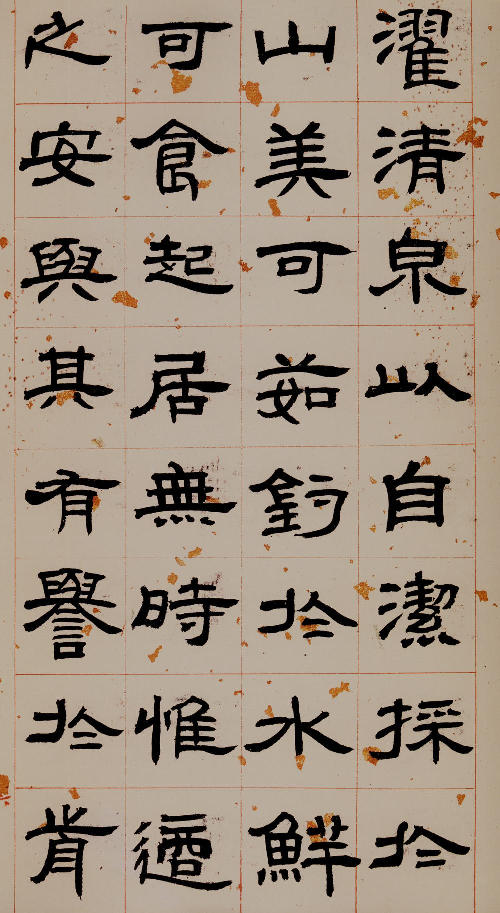 濯清泉以自潔採於
山美可茹釣於水鮮
可食起居無時惟適
之安與其有譽於前